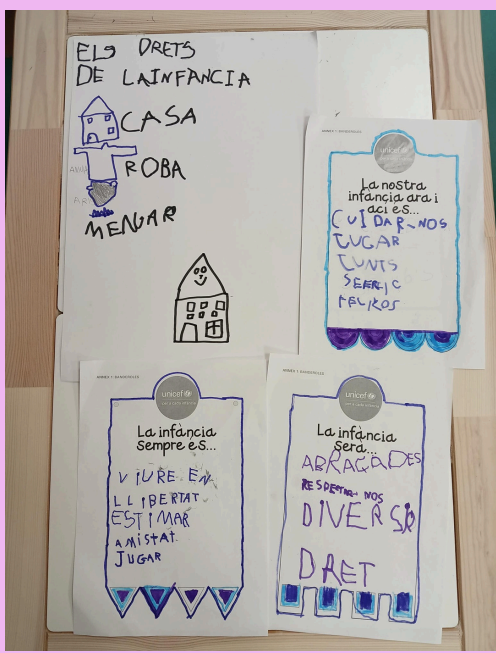 ELS DRETS
DE LAINFANCIA
CASA
ROBA
MENJAR
ANNEX 7. BANDEROLES
unicef
La nostra
infància ara i
ací és...
CUIDAR-NOS
JUGAR
JUNTS
FELIÇOS
ANNEX 7. BANDEROLES
unicef
La infància
sempre és...
VIURE EN
LLIBERTAT
ESTIMAR
AMISTAT
JUGAR
ANNEX 7. BANDEROLES
unicef
La infància
serà...
ABRAÇADES
RESPECTAR-NOS
DIVERSIÓ
DRET